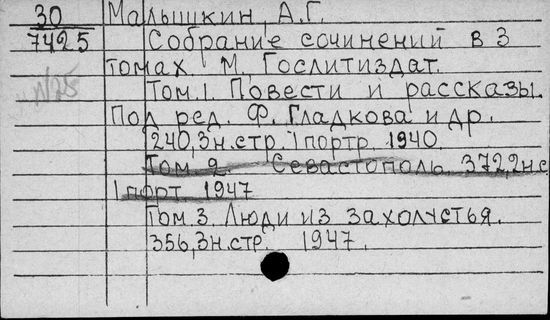 30 Малышкин, А.Г.
7425 Собрание сочинений в 3
томах. М, Гослитиздат.
Том.1. Повести и рассказы.
Под ред. Ф. Гладкова и др.
240,3н.стр. 1портр. 1940.
Том 2. Севастополь. 372,2н.с
1порт. 1947
Том 3. Люди из захолустья.
356,3н.стр. 1947.